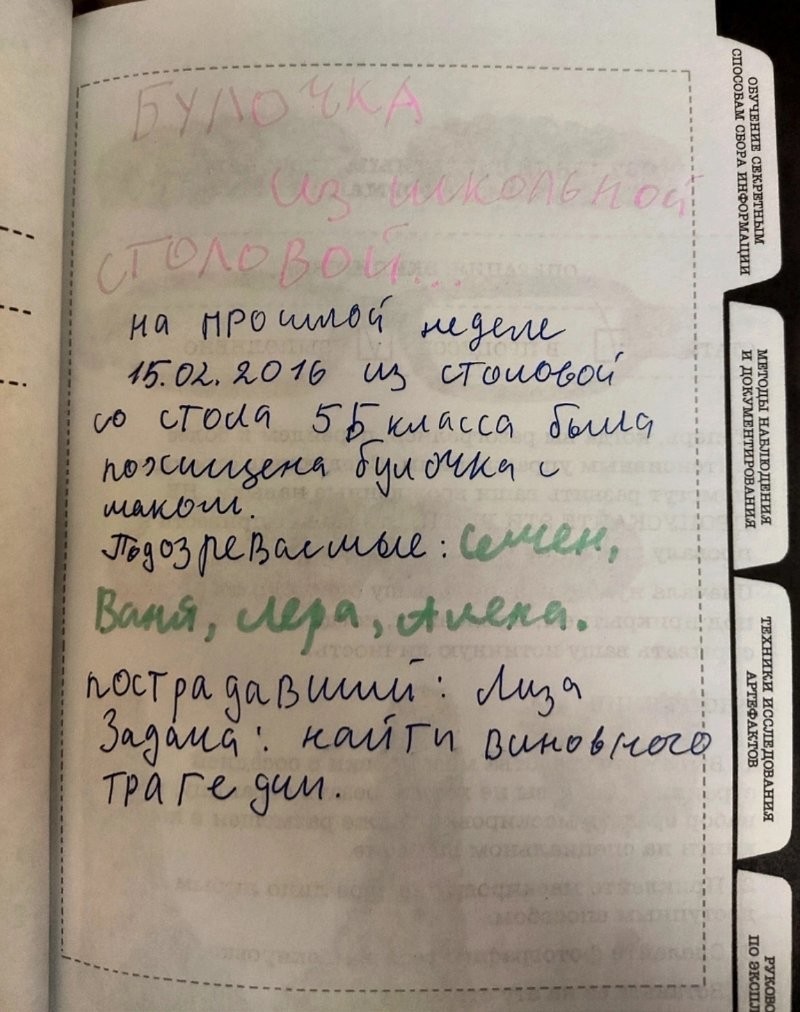 БУЛОЧКА
ИЗ ШКОЛЬНОЙ
СТОЛОВОЙ...
на прошлой неделе
15.02.2016 из столовой
со стола 5Б класса была
похищена булочка с
маком.
Подозреваемые: Семен,
Ваня, Лера, Алена.
пострадавший: Лиза
Задача: найти виновного
трагедии.
ОБУЧЕНИЕ СЕКРЕТНЫМ
СПОСОБАМ СБОРА ИНФОРМАЦИИ
МЕТОДЫ НАБЛЮДЕНИЯ
И ДОКУМЕНТИРОВАНИЯ
ТЕХНИКИ ИССЛЕДОВАНИЯ
АРТЕФАКТОВ
РУКОВО
ПО ЭКСПЛ